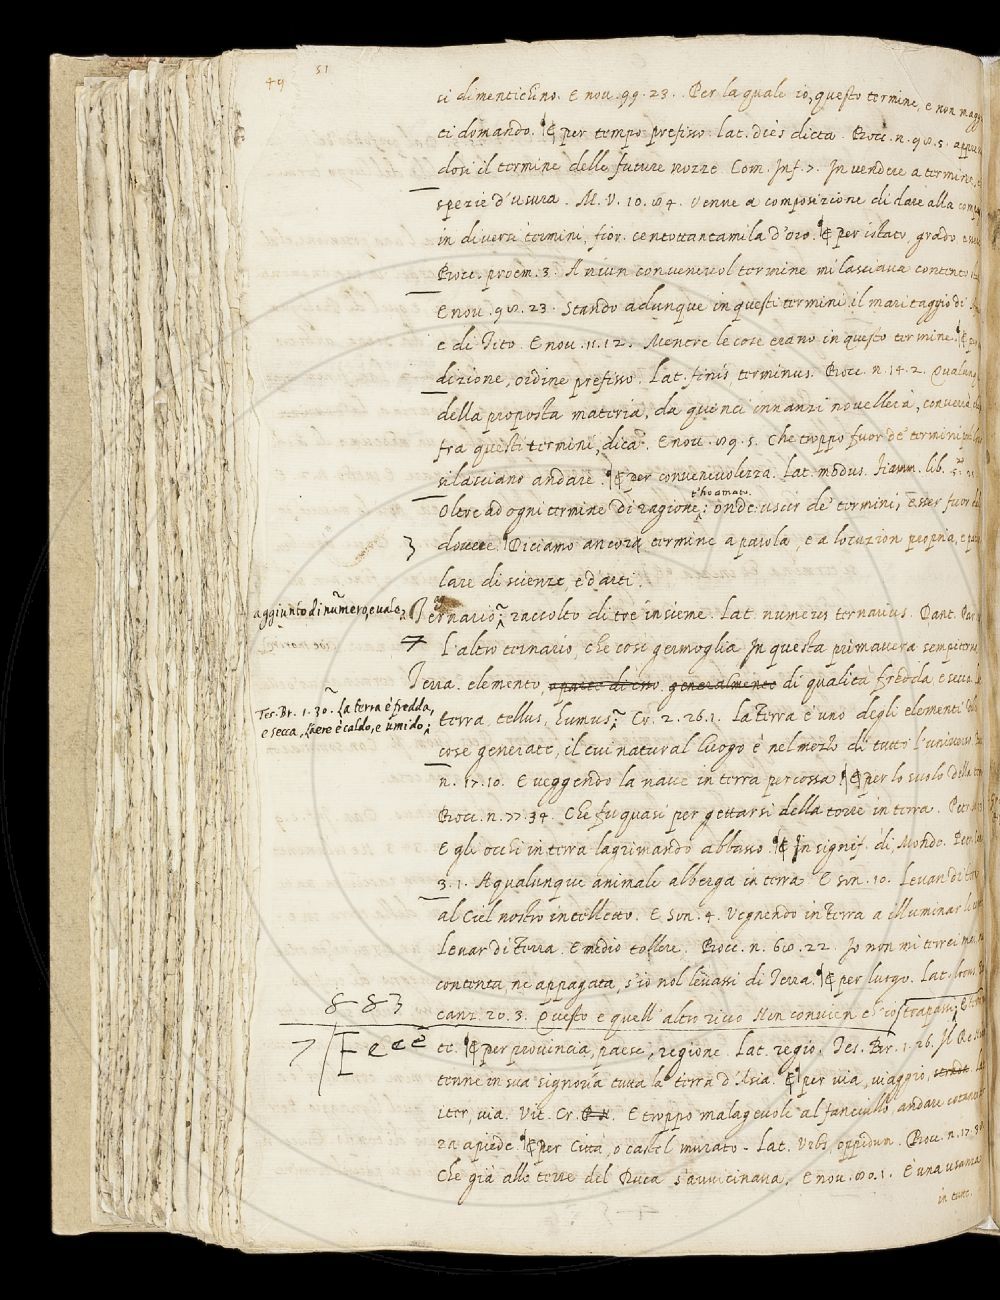 49 51
si dimentichino. E nou. 99. 23. Per la quale io, questo termine, e non magg
ti domando. E per tempo prefisso. Lat. dies dicta. Bocc. n. 98. 5. appres
dosi il termine delle future nozze. Com. Inf. 7. In vendere a termine,
spezie d'usura. M. V. 10. 84. Venne a composizione di dare alla comp
in diversi termini, fior. centottantamila d'oro. E per istato, grado, e
Bocc. proem. 3. A niun convenevol termine mi lasciava contento
E nou. 98. 23. Stando adunque in questi termini il maritaggio di
e di Tito. E nou. 11. 12. Mentre le cose erano in questo termine. E
dizione, ordine prefisso. Lat. finis terminus. Bocc. n. 14. 2. Qualun
della proposta materia, da quinci innanzi novellerà, converrà
fra questi termini, dica. E nou. 89. 5. Che troppo fuor de' termini
si lasciano andare. E per convenevolezza. Lat. modus. Fiamm. lib. 5.
t'ho amato.
Oltre ad ogni termine di ragione: onde uscir de' termini, esser fuor
3 dovere. Diciamo ancora termine a parola, e a locuzion propria, e
lare di scienze, e d'arti.
aggiunto di numero, e vale, Ternario, raccolto di tre insieme. Lat. numerus ternarius. Dant. Par.
7 L'altro ternario, che così germoglia In questa primavera sempitern
Terra. elemento, a parte di eno generalmente di qualità fredda, e secca.
Tes. Br. 1. 30. La terra è fredda,
e secca, l'aere è caldo, e umido;
terra, tellus, humus; Cr. 2. 26. 1. La Terra è uno degli elementi
cose generate, il cui natural luogo è nel mezzo di tutto l'universo.
n. 17. 10. E veggendo la nave in terra percossa. E per lo suolo della
Bocc. n. 77. 34. Che fu quasi per gettarsi della torre in terra. Petr.
E gli occhi in terra lagrimando abbasso. E In signif. di, Mondo. Petr.
3. 1. A qualunque animale alberga in terra. E son. 10. Levan di
al Ciel nostro intelletto. E son. 4. Vegnendo in terra a illuminar le
Levar di Terra. E medio tollere. Bocc. n. 68. 22. Io non mi terrei mai
contenta, nè appagata, s'io nol levassi di Terra. E per luogo. Lat. locus.
883
canz. 20. 3. Questo e quell'altro rivo Non convien ch'io trapassi,
7 Eccc
ec. E per provincia, paese, regione. Lat. regio. Tes. Br. 1. 26. Il Re
tenne in sua signoria tutta la terra d'Asia. E per via, viaggio, strada.
iter, via. Vit. Cr. P. N. E troppo malagevole al fanciullo andare cotan
ra a piede. E per Città, o castel murato. Lat. Urbs, oppidum. Bocc. n. 17. 38
Che già alle terre del Duca s'avvicinava. E nou. 80. 1. È una usanza
in tutte.